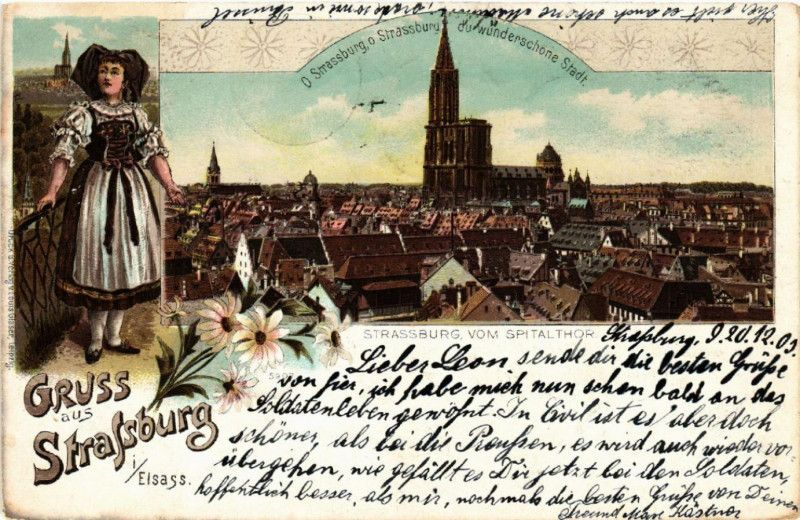 O Strassburg, o Strassburg du wunderschöne Stadt.
STRASSBURG, VOM SPITALTHOR.
Gruss
aus
Strassburg
i/Elsass.
5907
Straßburg, 20.12.
Lieber Leon, sende dir die besten Grüße
von hier, ich habe mich nun schon bald an das
Soldatenleben gewöhnt. In Civil ist es aber doch
schöner, als bei die Preußen, es wird auch wieder vor-
übergehen, wie gefällt es Dir jetzt bei den Soldaten,
hoffentlich besser, als mir, nochmals die besten Grüße von Deinem
Freund Max Kästner